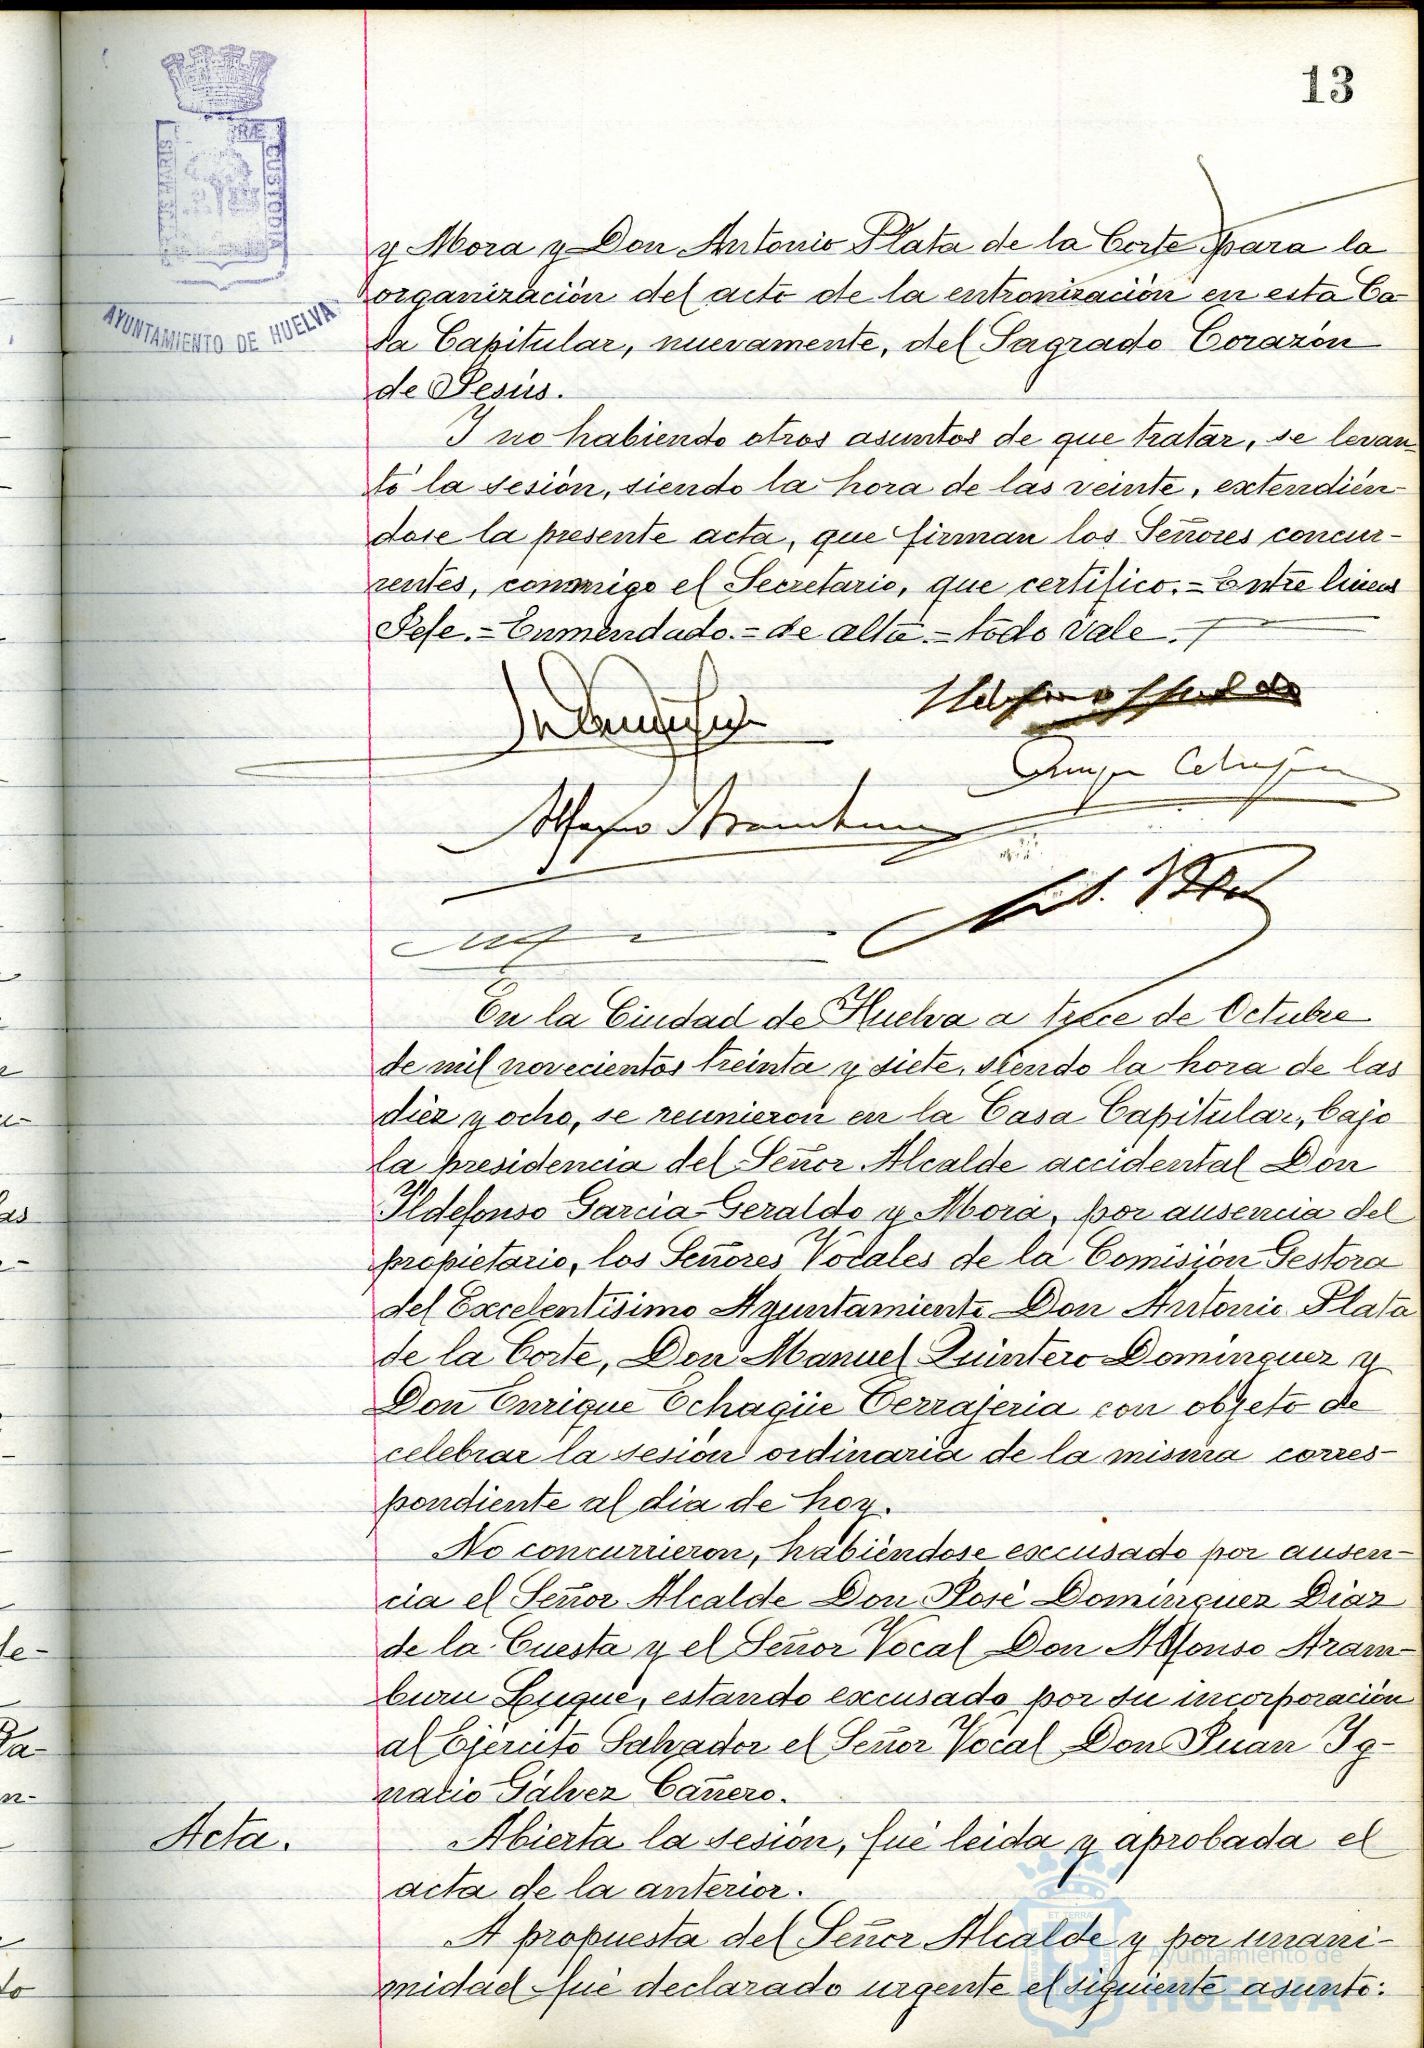 13
AYUNTAMIENTO DE HUELVA
y Mora y Don Antonio Plata de la Corte para la
organización del acto de la entronización en esta Ca-
sa Capitular, nuevamente, del Sagrado Corazón
de Jesús.
Y no habiendo otros asuntos de que tratar, se levan-
tó la sesión, siendo la hora de las veinte, extendién-
dose la presente acta, que firman los Señores concur-
rentes, conmigo el Secretario, que certifico.=Entre lineas
Jefe.=Enmendado.=de alta.=todo vale.
En la Ciudad de Huelva a trece de Octubre
de mil novecientos treinta y siete, siendo la hora de las
diez y ocho, se reunieron en la Casa Capitular, bajo
la presidencia del Señor Alcalde accidental Don
Ildefonso Garcia-Geraldo y Mora, por ausencia del
propietario, los Señores Vocales de la Comisión Gestora
del Excelentísimo Ayuntamiento Don Antonio Plata
de la Corte, Don Manuel Quintero Dominguez y
Don Enrique Echagüe Cerrajeria con objeto de
celebrar la sesión ordinaria de la misma corres-
pondiente al dia de hoy.
No concurrieron, habiéndose excusado por ausen-
cia el Señor Alcalde Don José Dominguez Diaz
de la Cuesta y el Señor Vocal Don Alfonso Aram-
buru Luque, estando excusado por su incorporación
al Ejército Salvador el Señor Vocal Don Juan Ig-
nacio Gálvez Cañero.
Acta.
Abierta la sesión, fué leida y aprobada el
acta de la anterior.
A propuesta del Señor Alcalde y por unani-
midad fué declarado urgente el siguiente asunto:
Ayuntamiento de
HUELVA